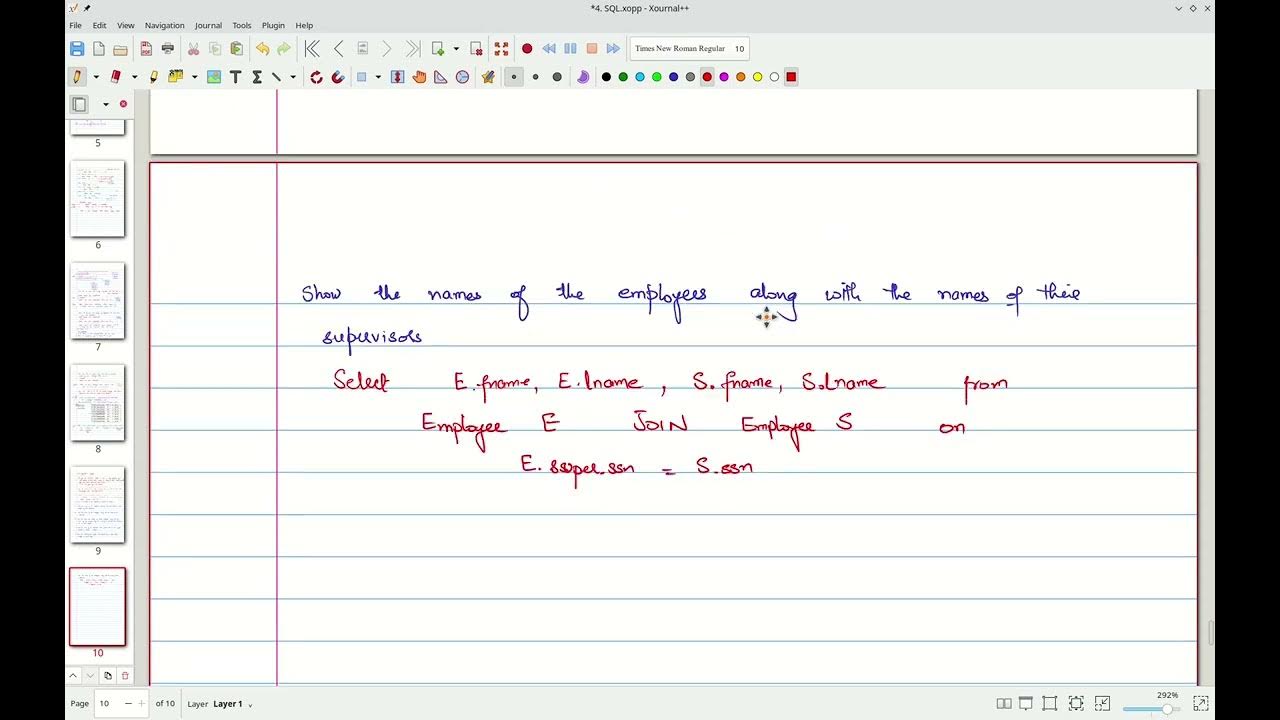 *4. SQL.xopp - Xournal++
File Edit View Navigation Journal Tools Plugin Help
Times New Roman Regular 10
5
6
7
8
9
10
Show the names of the employees along with the names of their
supervisors
Select E.fname E.lname , S.fname, S.lname from
Employee E JOIN Employee S on
E.super.ssn = S.ssn
Page 10 of 10 Layer Layer 1
292%